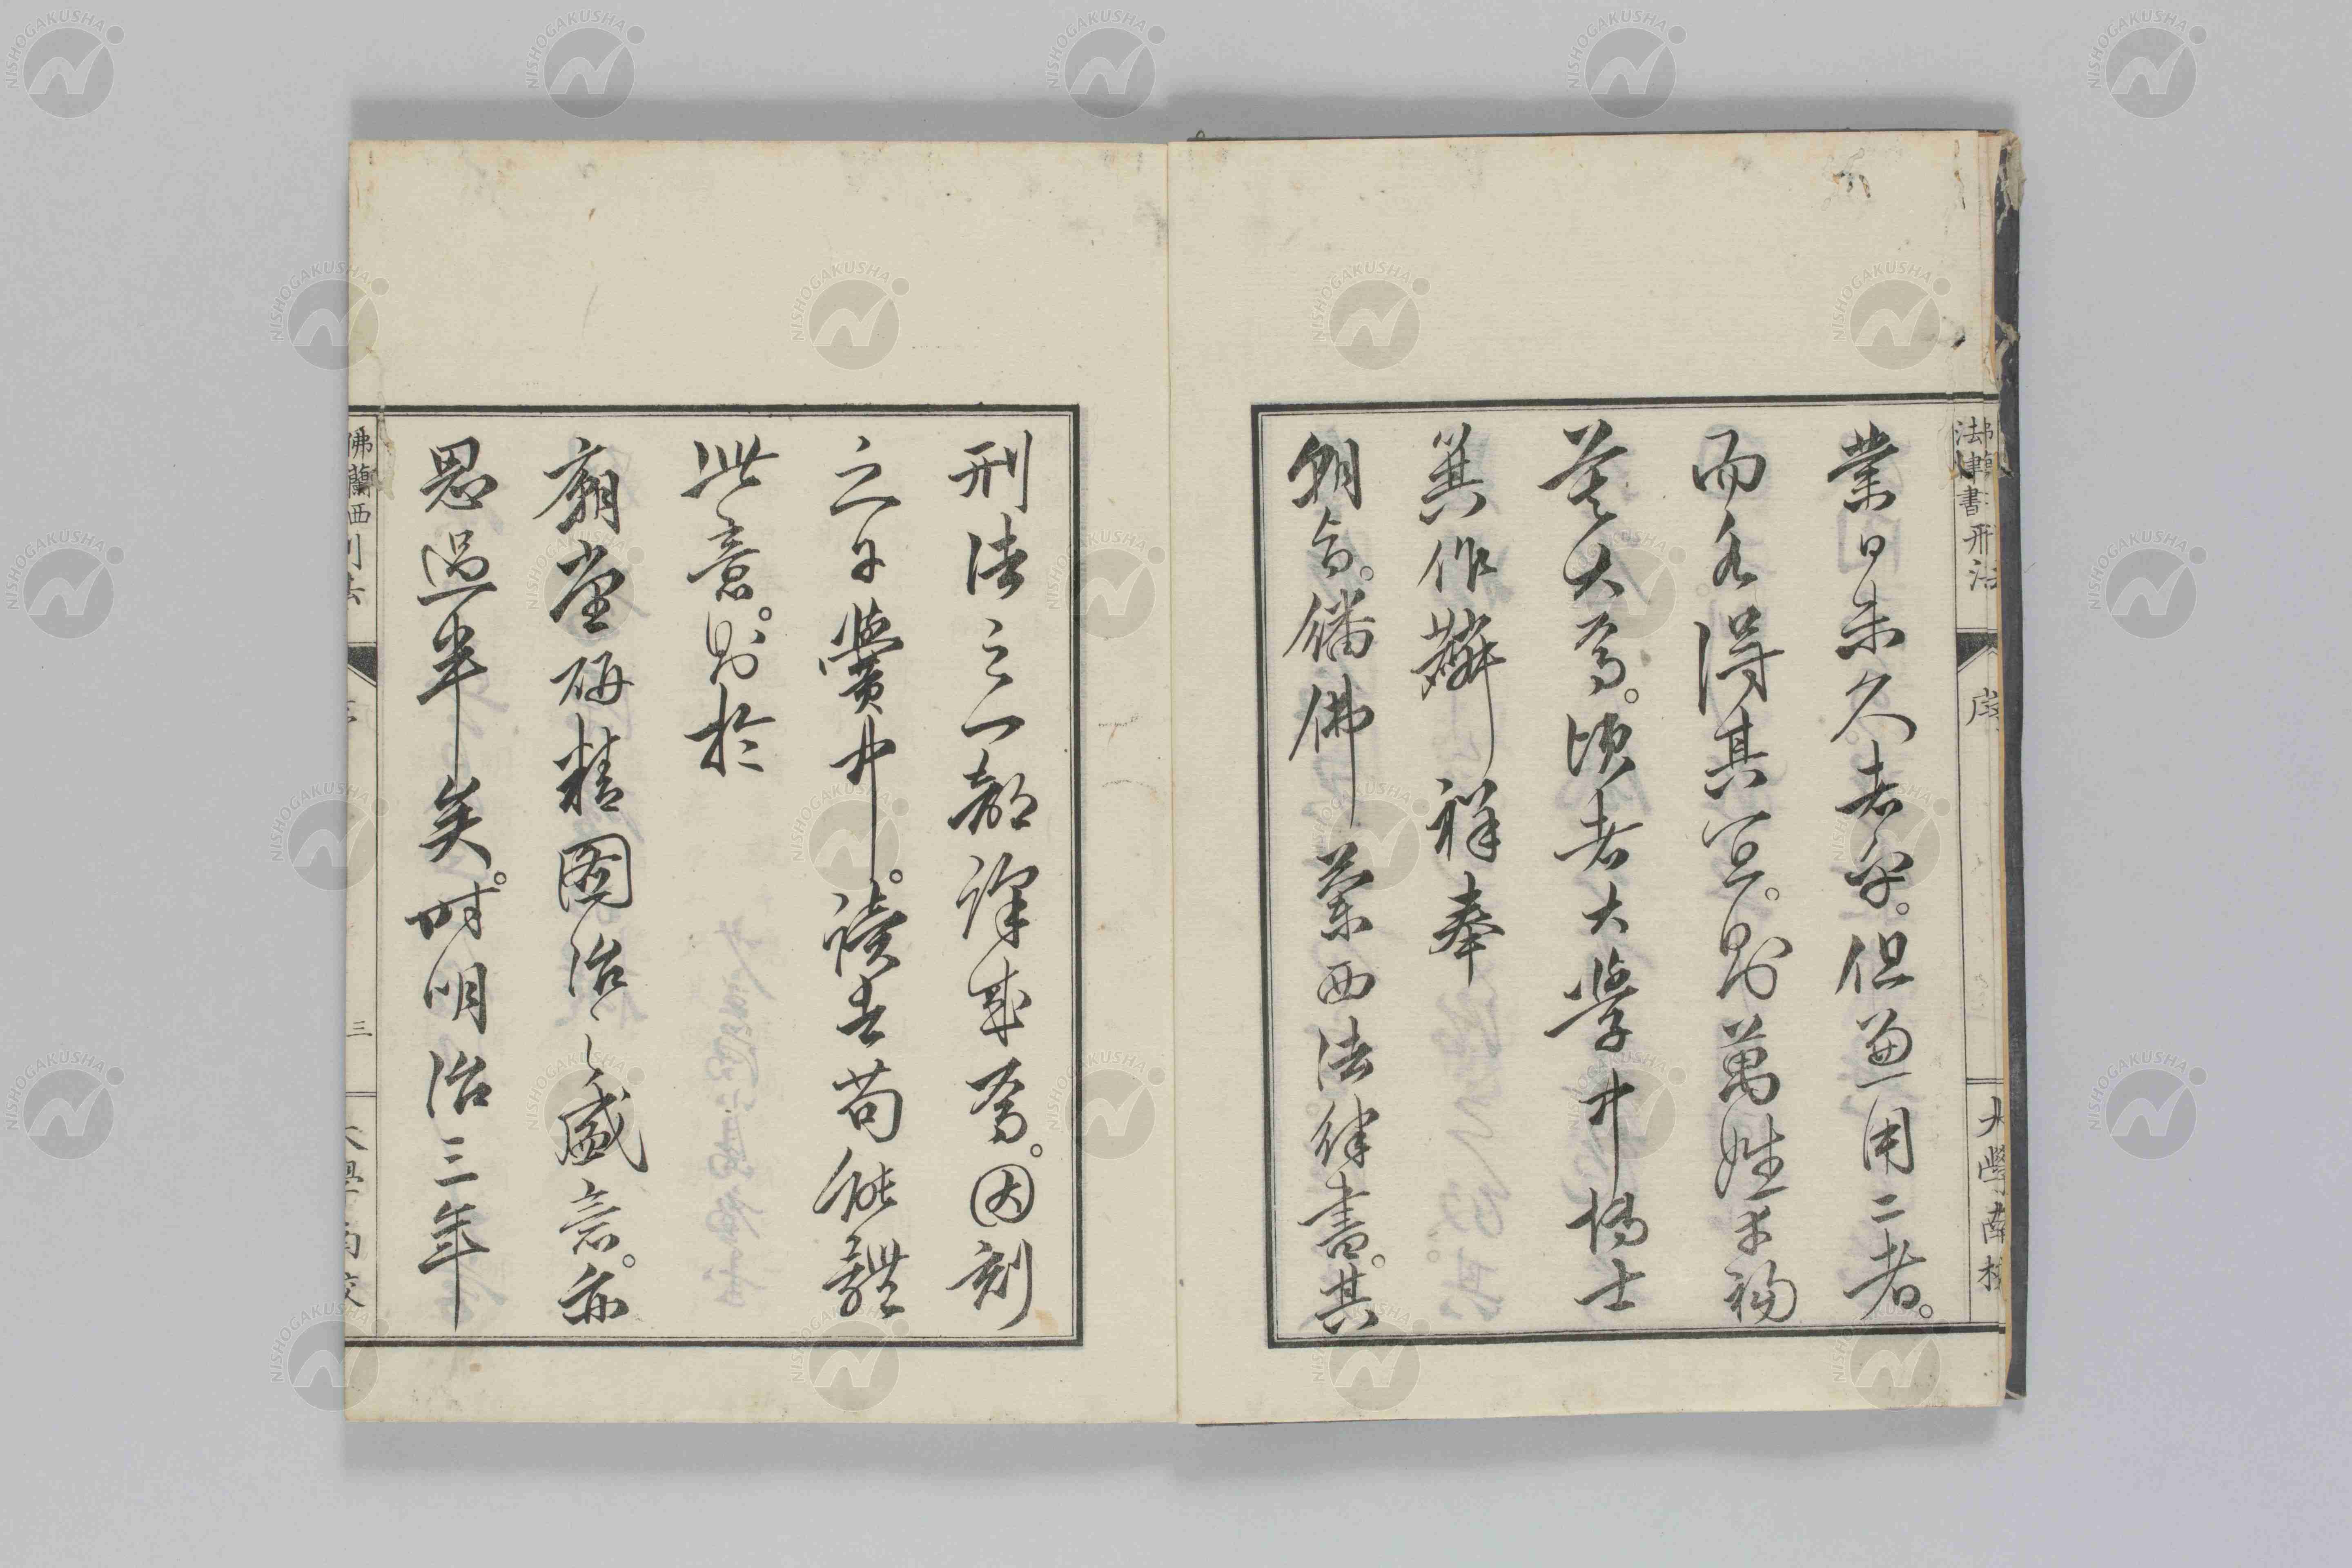 業日未久者乎。但並用二者。
而各得其宜。則萬姓幸福
莫大焉。頃者大學中博士
箕作麟祥奉
朝旨。繙佛蘭西法律書。其
刑法之一部譯成焉。因刻
之以黌中。讀者苟能體
此意。則於
廟堂研精圖治之盛意。亦
思過半矣。時明治三年
佛蘭西
法律書 刑法
序
大學南校
佛蘭西刑法
三
大學南校
NISHOGAKUSHA